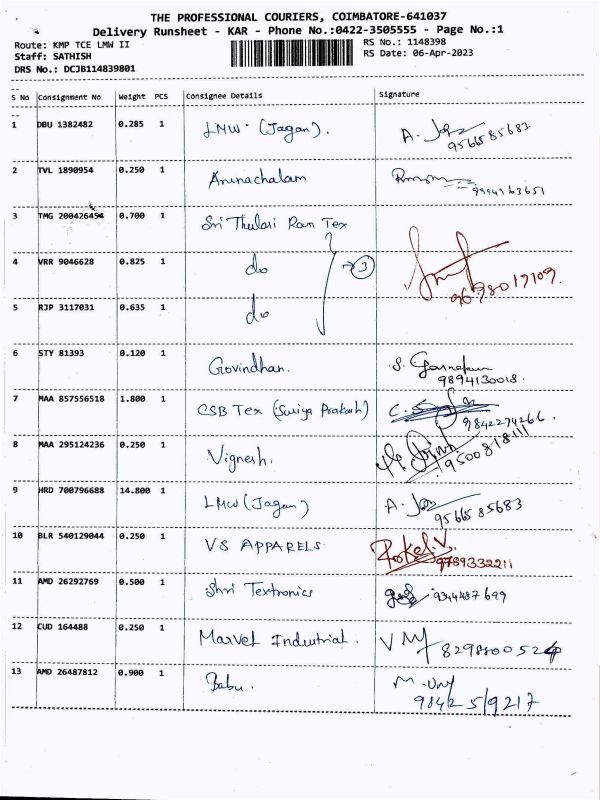 THE PROFESSIONAL COURIERS, COIMBATORE-641037
Delivery Runsheet - KAR - Phone No.:0422-3505555 - Page No.:1
Route: KMP TCE LMW II
RS No.: 1148398
Staff: SATHISH
RS Date: 06-Apr-2023
DRS No.: DCJB114839801
S No Consignment No Weight PCS Consignee Details Signature
1 DBU 1382482 0.285 1 LMW (Jagan). A. 9566585683
2 TVL 1890954 0.250 1 Arunachalam 9994763651
3 TMG 200426454 0.700 1 Sri Thulasi Ram Tex
4 VRR 9046628 0.825 1 do 3 9698017109.
5 RJP 3117031 0.635 1 do
6 STY 81393 0.120 1 Govindhan. S. 9894130018.
7 MAA 857556518 1.800 1 CSB Tex (Suriya Prakash) C. 9842274266.
8 MAA 295124236 0.250 1 Vignesh. 9500818111
9 HRD 700796688 14.800 1 LMW (Jagan) A. 9566585683
10 BLR 540129044 0.250 1 VS APPARELS 9789332211
11 AMD 26292769 0.500 1 Shri Textronics 9344487699
12 CUD 164488 0.250 1 Marvel Industrial. VM
13 AMD 26487812 0.900 1 Babu. 9842519217